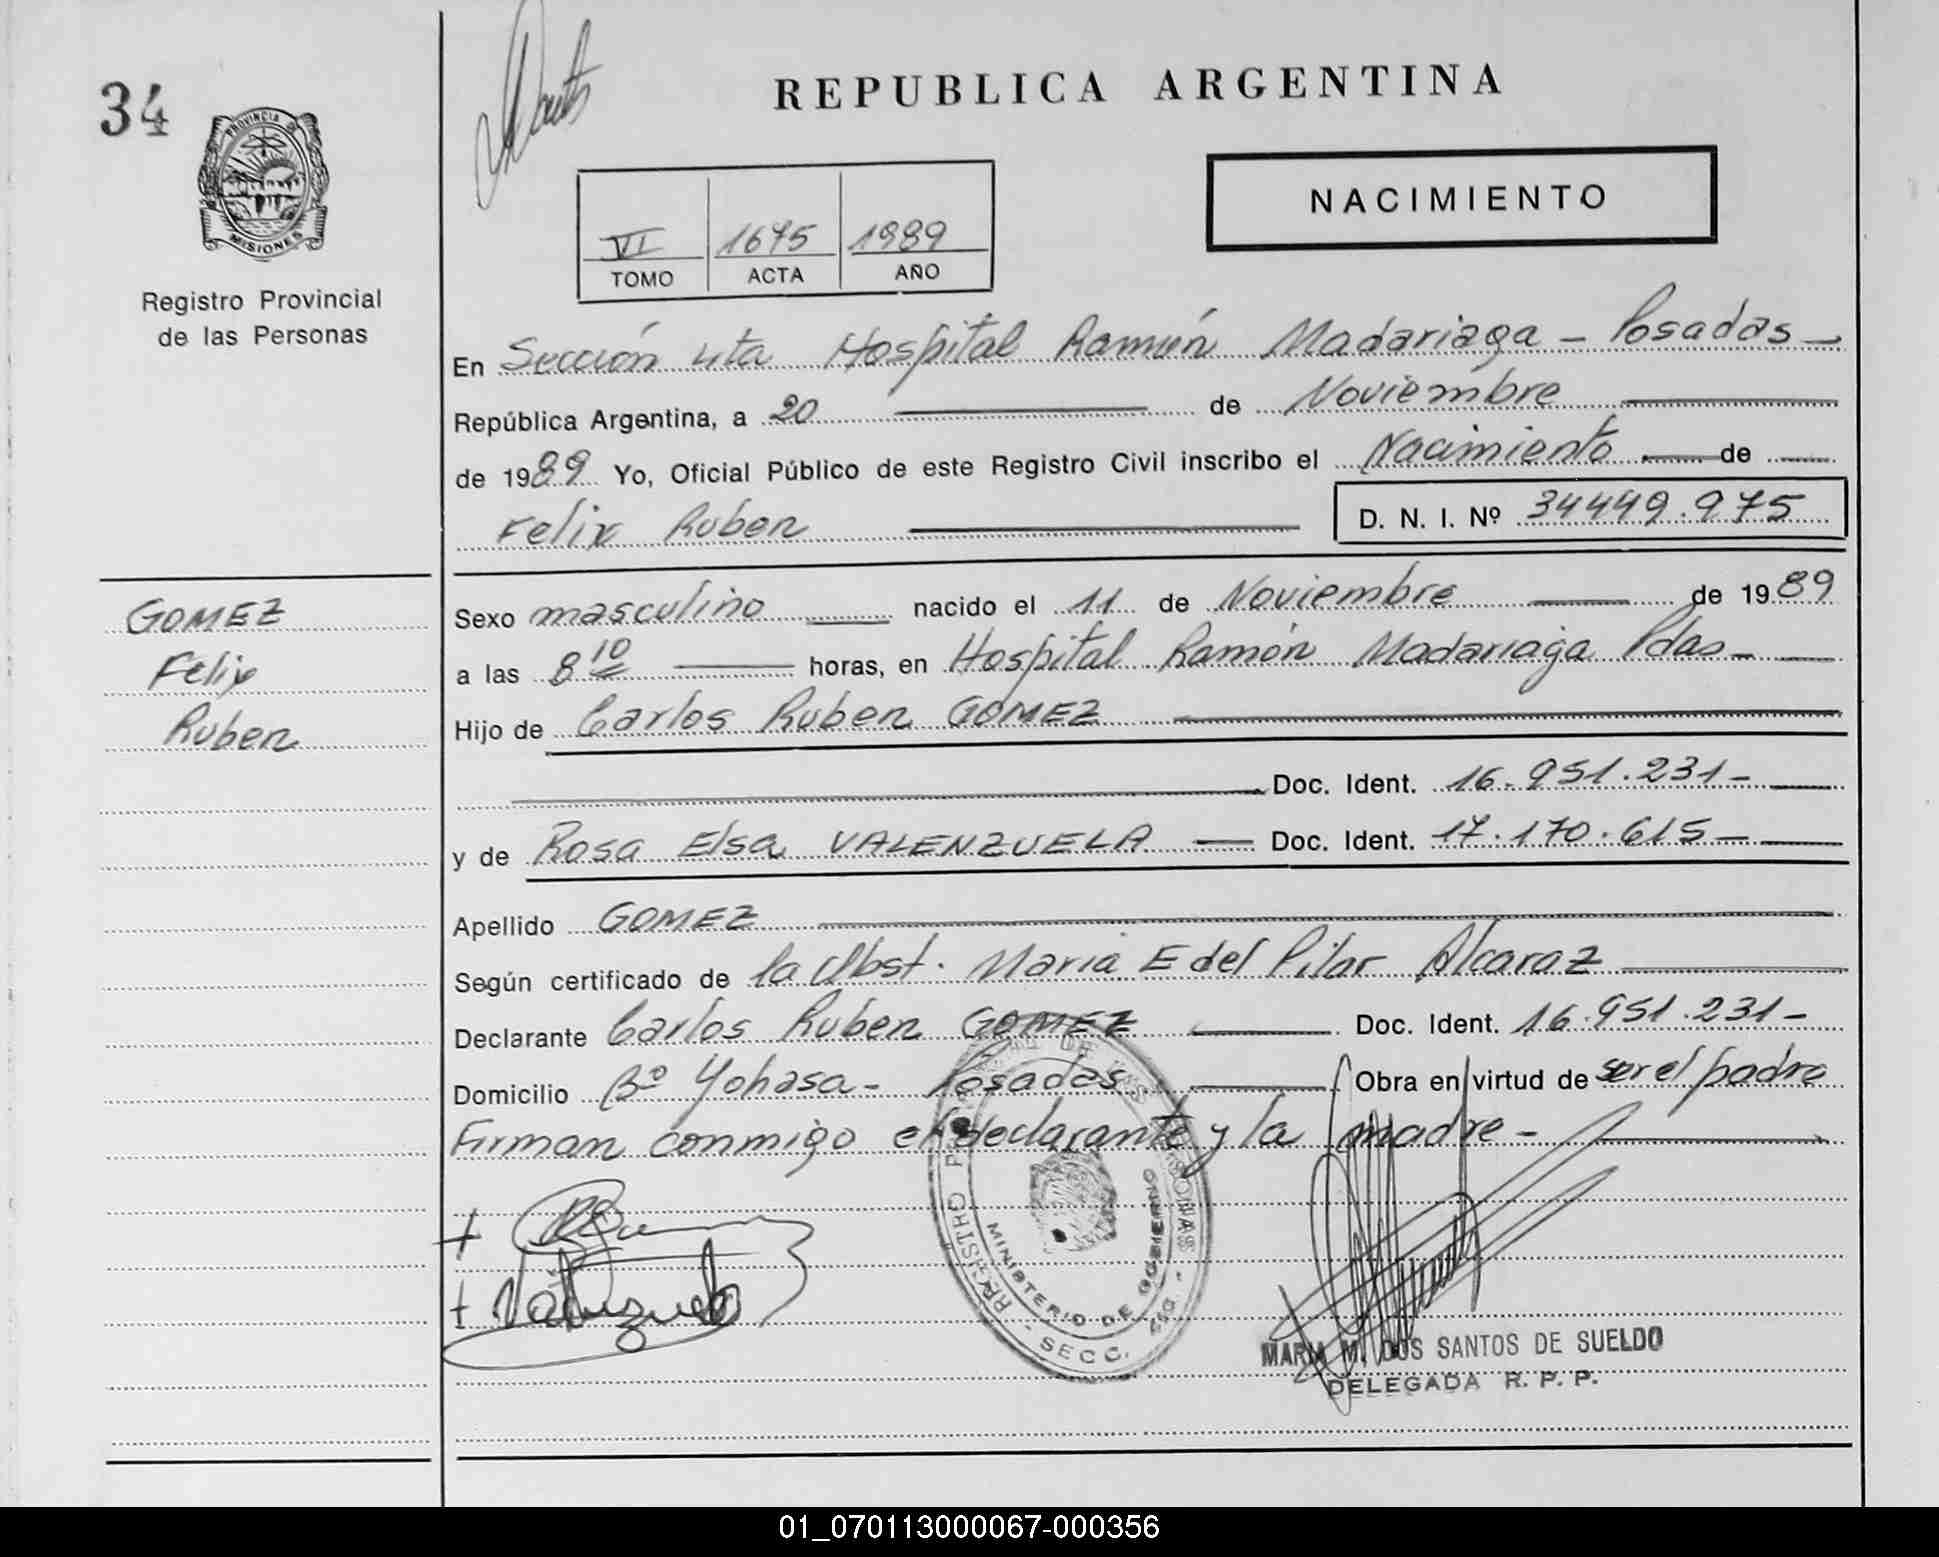 34
PROVINCIA DE
MISIONES
Registro Provincial
de las Personas
REPUBLICA ARGENTINA
NACIMIENTO
VI 1675 1989
TOMO ACTA AÑO
En Sección 4ta Hospital Ramón Madariaga - Posadas -
República Argentina, a 20 de Noviembre
de 1989 Yo, Oficial Público de este Registro Civil inscribo el Nacimiento de
Felix Ruben D. N. I. Nº 34449.975
GOMEZ
Felix
Ruben
Sexo masculino nacido el 11 de Noviembre de 1989
a las 8 10 horas, en Hospital Ramón Madariaga Pdas -
Hijo de Carlos Ruben GOMEZ
Doc. Ident. 16.951.231 -
y de Rosa Elsa VALENZUELA Doc. Ident. 17.170.615 -
Apellido GOMEZ
Según certificado de la Obst. Maria E del Pilar Alcaraz
Declarante Carlos Ruben GOMEZ Doc. Ident. 16.951.231 -
Domicilio Bº Yohasa - Posadas Obra en virtud de ser el padre
Firman conmigo el declarante y la madre -
MINISTERIO DE GOBIERNO
SECC.
MARIA M. DOS SANTOS DE SUELDO
DELEGADA R. P. P.
01_070113000067-000356